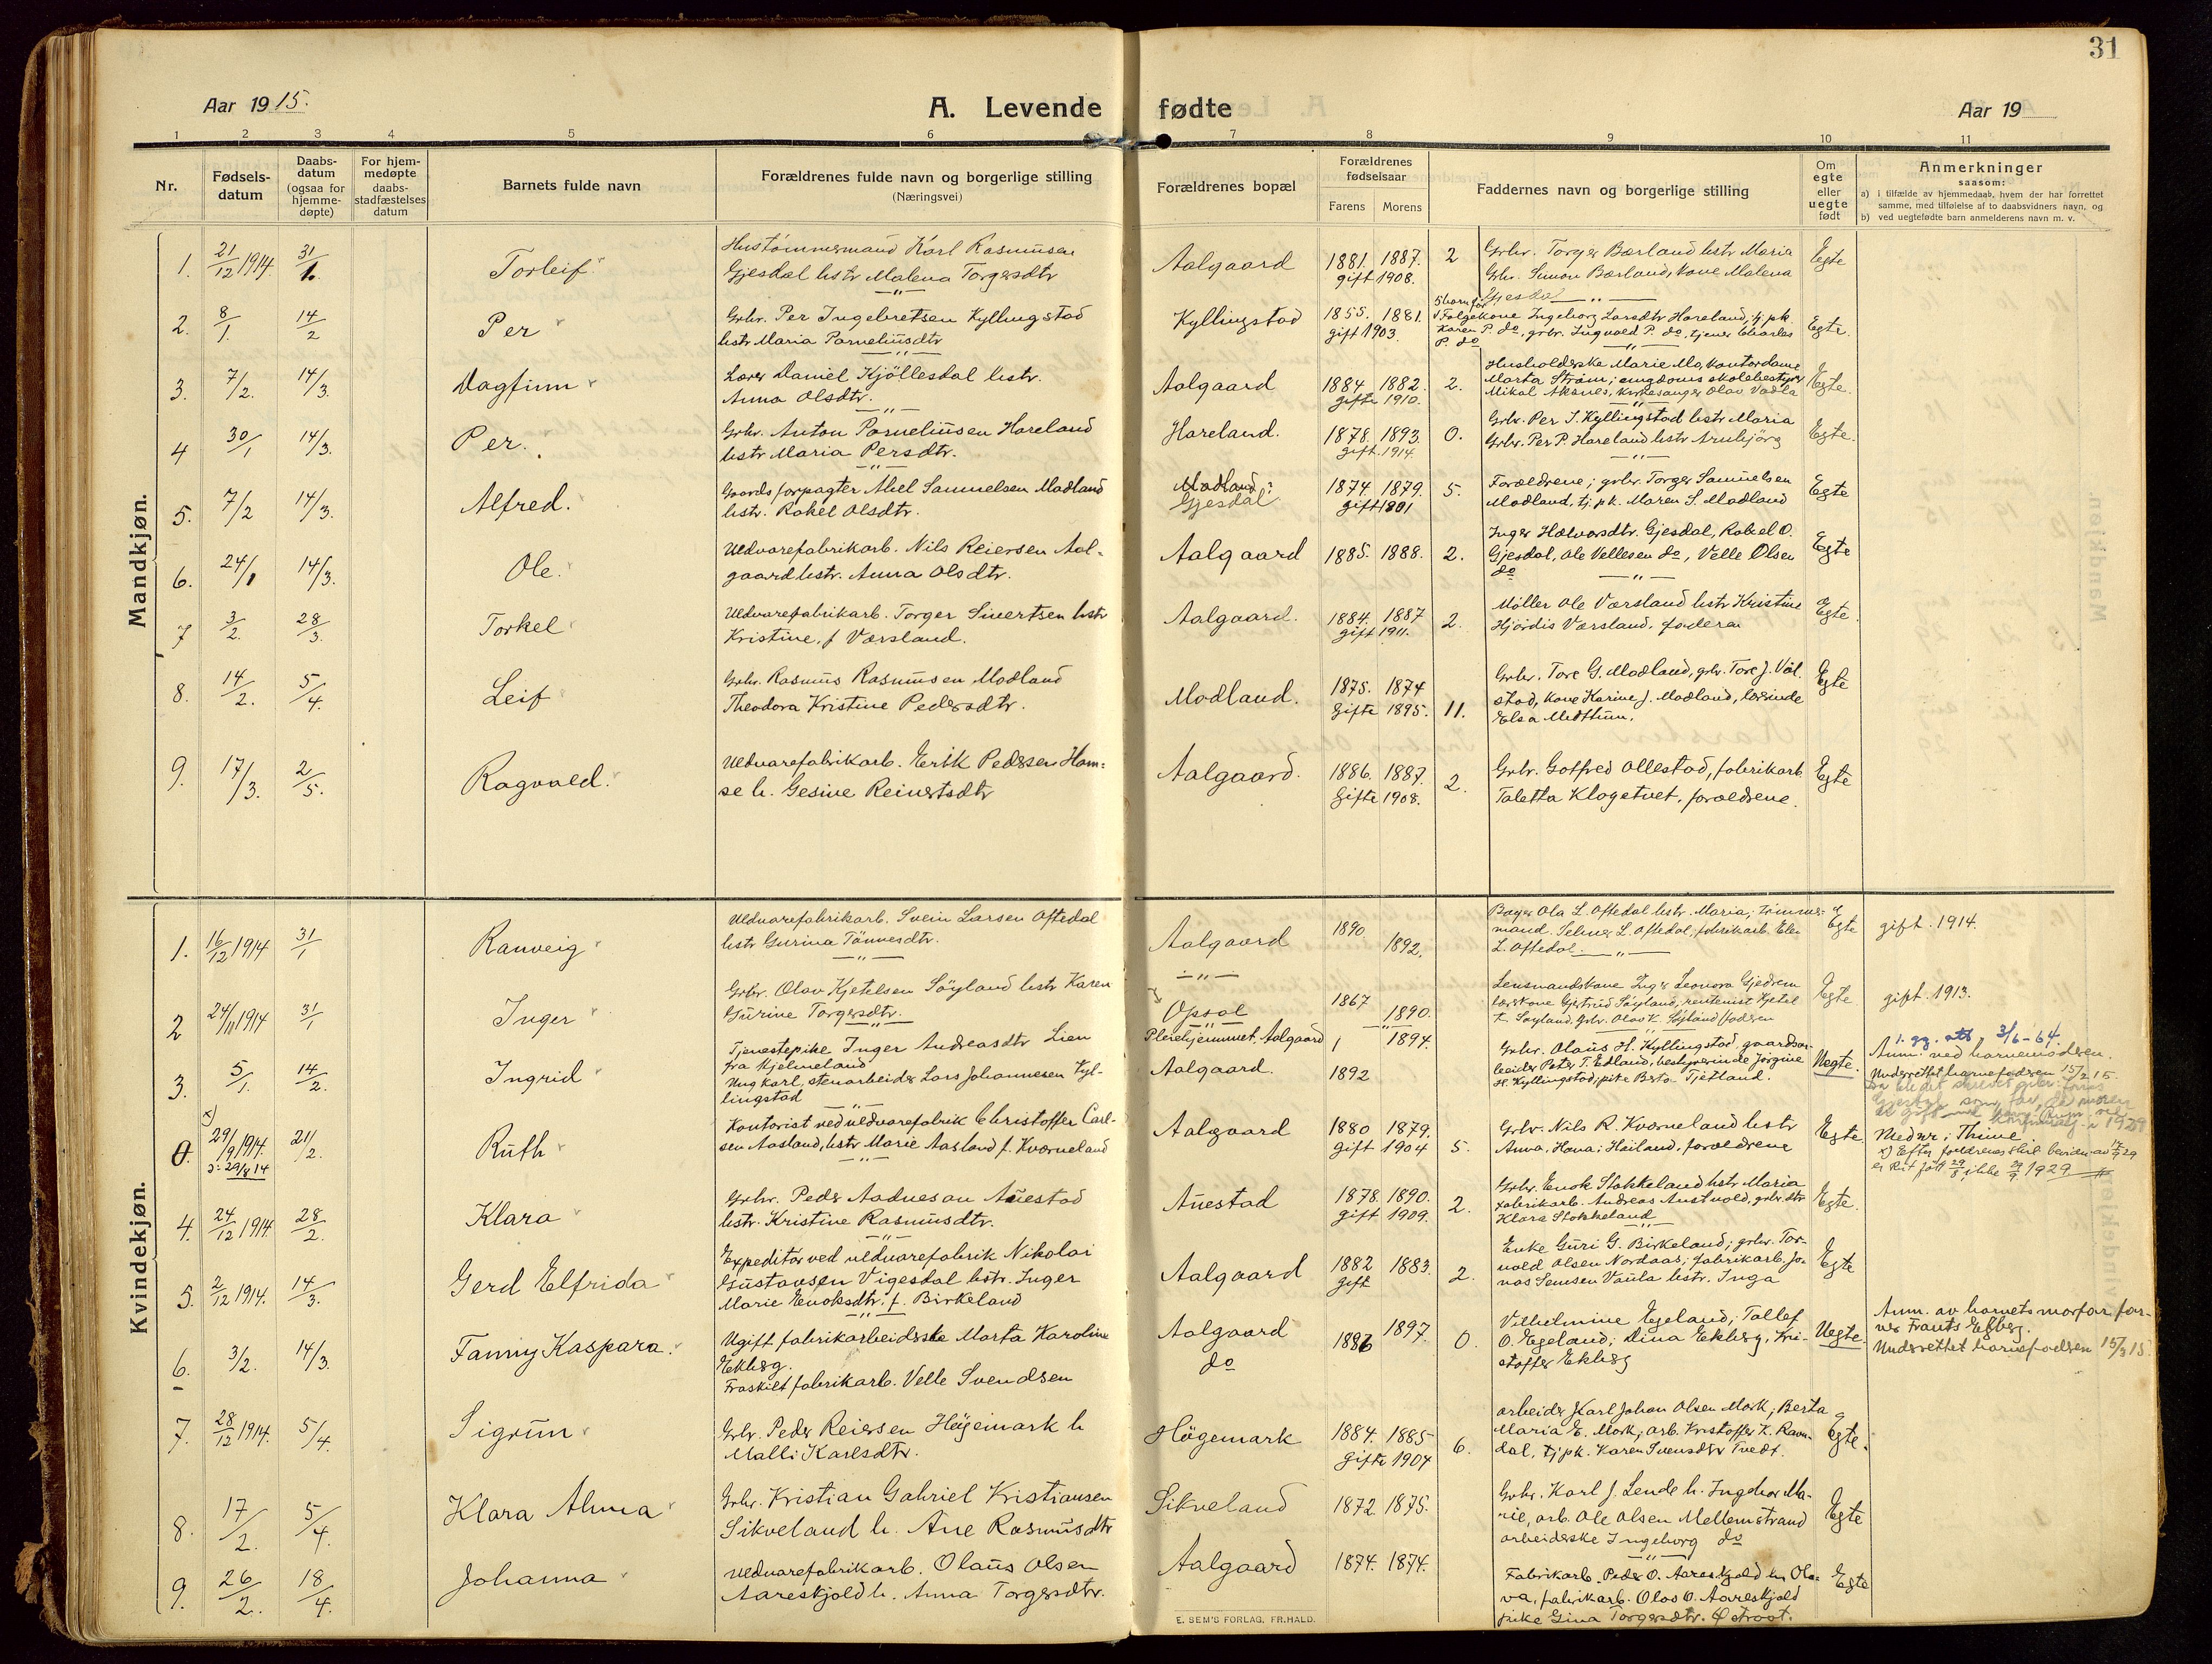 31
Aar 1915.
A. Levende fødte
Aar 19
1 2 3 4 5 6 7 8 9 10 11
Nr.
Fødsels-
datum
Daabs-
datum
(ogsaa for
hjemme-
døpte)
For hjem-
medøpte
daabs-
stadfæstelses
datum
Barnets fulde navn
Forældrenes fulde navn og borgerlige stilling
(Næringsvei)
Forældrenes bopæl
Forældrenes
fødselsaar
Farens Morens
Faddernes navn og borgerlige stilling
Om
egte
eller
uegte
født
Anmerkninger
saasom:
a) i tilfælde av hjemmedaab, hvem der har forrettet
samme, med tilføielse af to daabsvidners navn, og
b) ved uegtefødte barn anmelderens navn m. v.
Mandkjøn.
1. 21/12 1914. 31/1. Torleif
Hustömmermand Karl Rasmusen
Gjesdal hstr Malena Torgersdtr
Aalgaard 1881. 1887. 2
gift 1908.
Grbr. Torger Bærland hstr Maria
Grbr. Simon Bærland, kone Malena
Gjesdal
Egte
2. 8/1. 14/2 Per
Grbr. Per Ingebretsen Kyllingstad
hstr Maria Porneliusdtr
Kyllingstad 1855. 1881.
gift 1903.
Folgekone Ingeborg Larsdtr Hareland, tj. pk.
Karen P. do, grbr. Ingvald P. do, tjener Charles
P. do
Egte.
3. 7/2. 14/3. Dagfinn
Lærer Daniel Kjöllesdal hstr.
Anna Olsdtr.
Aalgaard 1884 1882. 2.
gifte 1910.
Husholderske Marie Mo, kontordame
Marta Ström; ungdoms skolebestyrer
Mikal Aksnes, kirkesanger Olav Vadla
Egte.
4 30/1 14/3. Per.
Grbr. Anton Porneliusen Hareland
hstr Maria Persdtr.
Hareland. 1878. 1893. 0.
gift. 1914.
Grbr. Per I. Kyllingstad hstr Maria
Grbr. Per P. Hareland hstr Arnbjörg
Egte.
5. 7/2 14/3. Alfred.
Gaardsforpagter Abel Samuelsen Madland
hstr. Rakel Olsdtr.
Madland;
Gjesdal
1874. 1879. 5.
gift 1801
Forældrene; grbr. Torger Samuelsen
Madland, tj. pk. Maren S. Madland
Egte
6. 24/1 14/3. Ole.
Uldvarefabrikarb. Nils Reiersen Aal-
gaard hstr. Anna Olsdtr.
Aalgaard 1885. 1888. 2.
Inger Halvorsdtr. Gjesdal, Rakel O.
Gjesdal, Ole Vellesen do, Velle Olsen
do
Egte
7 3/2. 28/3. Torkel
Uldvarefabrikarb. Torger Sivertsen hstr
Kristine, f Værsland.
Aalgaard. 1884. 1887 2.
gift 1911.
Møller Ole Værsland hstr Kristine
Hjördis Værsland, faderen
Egte.
8. 14/2. 5/4. Leif
Grbr. Rasmus Rasmusen Madland
Theodora Kristine Pedersdtr.
Madland. 1875. 1874 11.
Gifte 1895.
Grbr. Tore G. Madland, grbr. Tore J. Vål-
stad, kone Karine J. Madland, lærerinde
Elsa Midtthun.
Egte
9. 17/3. 2/5. Ragvald.
Uldvarefabrikarb. Erik Pedersen Ham-
se h. Gesine Reinertsdtr
Aalgaard. 1886. 1887. 2.
Gifte 1908.
Grbr. Gotfred Ollestad, fabrikarb.
Taletta Klagetvet, forældrene.
Egte
Kvindekjøn.
1. 16/12 1914 31/1 Ranveig
Uldvarefabrikarb. Svein Larsen Oftedal
hstr Gurina Tönnesdtr.
Aalgaard 1890 1892.
Bager Ola L. Oftedal hstr. Maria; tömmer-
mand. Selmer L. Oftedal, fabrikarb. Elen
L. Oftedal.
Egte
gift. 1914.
2 24/11 1914 31/1 Inger
Grbr. Olav Kjetelsen Söyland hstr Karen
Gurine Torgersdtr.
Opsal 1867 1890.
Lensmandskone Inger Leonora Gjedrem
lærerkone Gjertrud Söyland, rentenist Kjetel
K. Söyland. Grbr. Olav K. Söyland faderen
Egte
gift. 1913.
3. 5/1. 14/2. Ingrid
Tjenestepike Inger Andreasdtr Lien
fra Hjelmeland
Ungkarl, stenarbeider Lars Johannesen Kyl-
lingstad
Pleiehjemmet, Aalgaard 1894.
Aalgaard. 1892
Grbr. Olaus H. Kyllingstad, gaardsar-
beider Peter T. Edland, bestyrerinde Jörgine
H. Kyllingstad, pike Berta Tjetland.
Uegte.
1. gg. att. 3/6-64.
Anm. ved barnemoderen.
Underrettet barnefaderen 15/2 15.
0. x) 29/9 1914. 21/2. Ruth
ɔ: 29/8 14
Kontorist ved uldvarefabrik Christoffer Carl-
sen Aasland, hstr Marie Aasland f. Kværneland
Aalgaard 1880 1879. 5.
gift 1904
Grbr. Nils R. Kværneland hstr
Anna, Hana; Høiland, forældrene
Egte
Medvr; Thime.
x) Efter forældrenes skrl. bevidn. av
er Rut født 29/8, ikke 29/9 1929
4. 24/12 1914. 28/2. Klara
Grbr. Peder Aadnesøn Auestad
hstr. Kristine Rasmusdtr.
Auestad 1878. 1890. 2.
gift 1909.
Grbr. Enok Stokkeland hstr Maria
fabrikarb. Andreas Austvold, grbr. dtr
Klara Stokkeland
Egte.
5. 2/12 1914. 14/3. Gerd Elfrida
Expeditör ved uldvarefabrik Nikolai
Gustavsen Vigesdal hstr. Inger
Marie Enoksdtr. f. Birkeland
Aalgaard 1882 1883. 2.
gift
Enke Guri G. Birkeland; grbr. Tor-
vald Olsen Nordaas; fabrikarb. Jo-
nas Semsen Vaula hstr. Inga
Egte
6. 3/2. 14/3. Fanny Kaspara.
Ugift fabrikarbeiderske Marta Karoline
Ekberg.
Fraskilt fabrikarb. Velle Svendsen
Aalgaard
do
1886 1897. 0.
Vilhelmine Egeland; Tollef
O. Egeland; Dina Ekberg, Kri-
stoffer Ekberg
Uegte.
Anm. av barnets morfar for-
ner Frants Ekberg.
Underrettet barnefaderen 15/3 15.
7. 28/12 1914. 5/4. Sigrun
Grbr. Peder Reiersen Høgemark h
Malli Karlsdtr.
Högemark 1884. 1885 6.
Gifte 1904
arbeider Karl Johan Olsen Mork; Berta
Maria E. Mork; arb. Kristoffer K. Ravn-
dal, tj. pk. Karen Svensdtr Tvedt.
Egte.
8. 17/2. 5/4. Klara Alma
Grbr. Kristian Gabriel Kristiansen
Sikveland h. Ane Rasmusdtr
Sikveland 1872. 1875.
Grbr. Karl J. Lende h. Ingebor Ma-
rie, arb. Ole Olsen Mellemstrand
arbeiderske Ingeborg do
Egte
9. 26/2. 18/4. Johanna
Uldvarefabrikarb. Olaus Olsen
Aareskjold h. Anna Torgersdtr.
Aalgaard 1874. 1874.
Fabrikarb. Peder O. Aareskjold h. Ola-
va, fabrikarb. Olas O. Aareskjold
pike Gina Torgersdtr.
Egte
E. SEM'S FORLAG. FR.HALD.